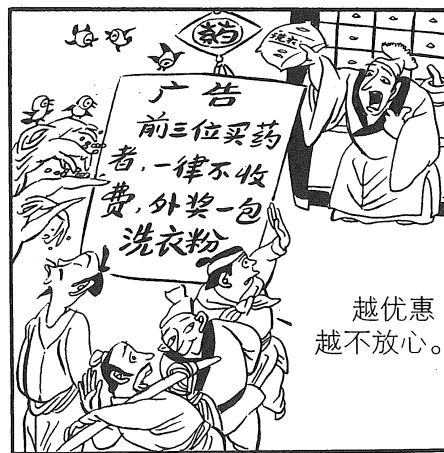 药
洗衣粉
广告
前三位买药
者，一律不收
费，外奖一包
洗衣粉
越优惠
越不放心。